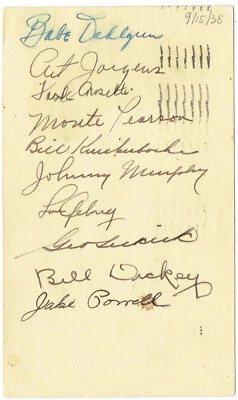 9/15/38
Babe Dahlgren
Art Jorgens
Frank Crosetti
Monte Pearson
Bill Knickerbocker
Johnny Murphy
Lou Gehrig
Geo Selkirk
Bill Dickey
Jake Powell